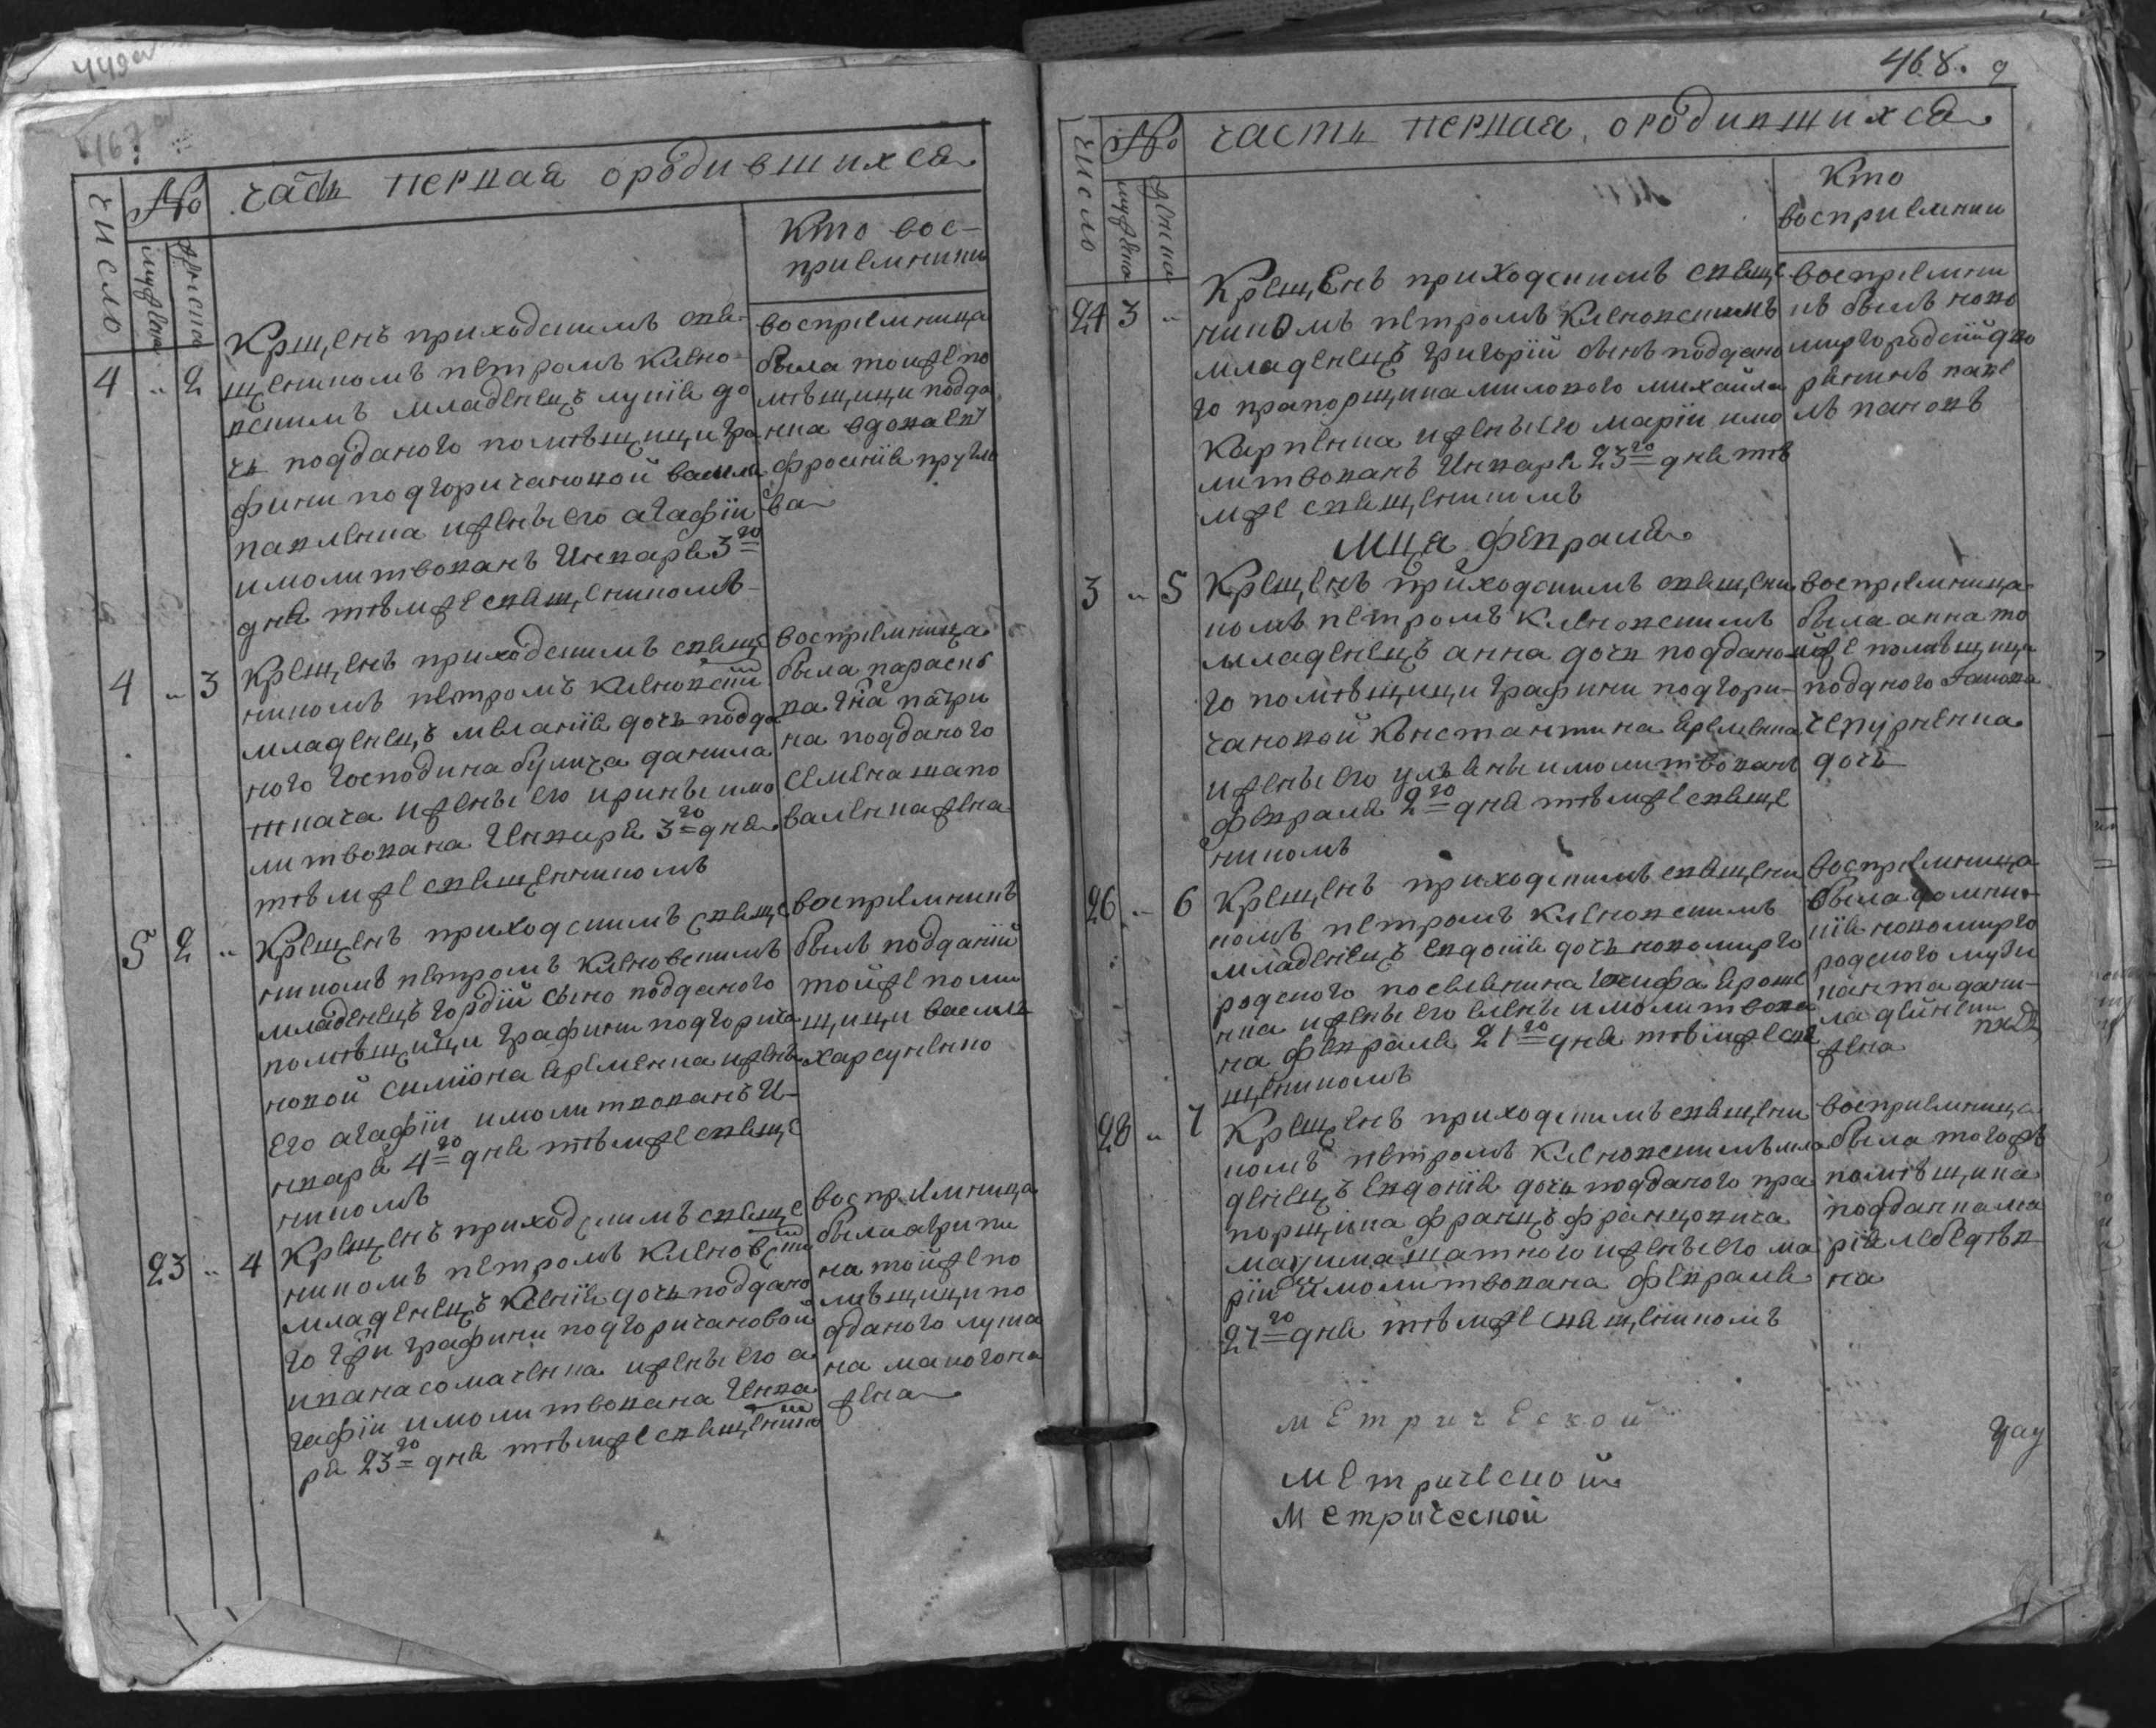 449
467
часть первая ородившихся
число
№
мужеска
женска
Кто вос-
приемники
4 " 2
Крщенъ приходскимъ свя-
щенникомъ петромъ Клено-
вскимъ младенецъ лукія до
чь подданого помѣщици гра
фини подгоричановой васила
павленка и жены его агафіи
имолитвованъ Июнваря 3го
дня тѣмже священикомъ
воспріемница
была тойже по
мѣщици подда
нка вдова ев
фросинія
ва
4 " 3
Крещенъ приходскимъ свяще
никомъ петромъ Кленовскім
младенецъ меланія дочь подда
ного господина булича данила
ткача и жены его ирины имо
литвована Иянваря 3го дня
тѣмже священникомъ
воспріемница
была параскѣ
на подданого
семена шапо
валенка жена
5 2 "
Крещенъ приходскимъ свяще
никомъ петромъ Кленовскимъ
младенецъ гордій сынъ подданого
помѣщици графини подгорича
новой симіона яременка и жены
его агафіи имолитвованъ И-
нваря 4го дня тѣмже свяще
никомъ
воспріемникъ
былъ подданій
тойже помѣ
щици василь
харсуненко
23 " 4
Крещенъ приходскимъ свяще
никомъ петромъ Кленовским
младенецъ Ксенія дочь поддано
го гфи графини подгоричановой
ивана сомаченка и жены его а
гафіи имолитвована Инва
ря 23го дня тѣмже священико
воспріемница
была агрипи
на тойже по
мѣщици по
дданого лукя
на макогона
жена
468. 9
часть первая ородившихся
число
№
мужеска
женска
Кто
восприемники
24 3 "
Крещенъ приходскимъ свяще
никомъ петромъ Кленовскимъ
младенецъ григорій сынъ поддано
го прапорщика милокого михайла
Карпенка и жены его маріи имо
литвованъ Инваря 23го дня тѣ
мже священикомъ
воспріемни
къ былъ ново
миргородскій дво
ренинъ паве
лъ пановъ
Мца февраля
3 " 5
Крещенъ приходскимъ священи
комъ петромъ Кленовскимъ
младенецъ анна дочь поддано
го помѣщици графини подгори-
чановой Констянтина яременка
и жены его ульяны имолитвованъ
февраля 2го дня тѣмже свяще
никомъ
воспріемница
была анна то
йже помѣщици
подданого
чепурненка
дочь
26 " 6
Крещенъ приходскимъ священи
комъ петромъ Кленовскимъ
младенецъ евдокія дочь новомирго
родского поселянина іосифа яроше
нка и жены его елены имолитвова
на февраля 21го дня тѣмже свя
щеникомъ
воспріемница
была домни-
кія новомирго
родского музи
канта дани-
ла дейнеки
жена
28 " 7
Крещенъ приходскимъ священи
комъ петромъ Кленовскимъ мла
денецъ евдокія дочь подданого пра
порщика францъ францовича
максима шатного и жены его ма
ріи имолитвована февраля
27го дня тѣмже священикомъ
воспріемница
была тогожъ
помѣщика
подданка ма
рія лебедѣв
на
метрической
метрической
метрической